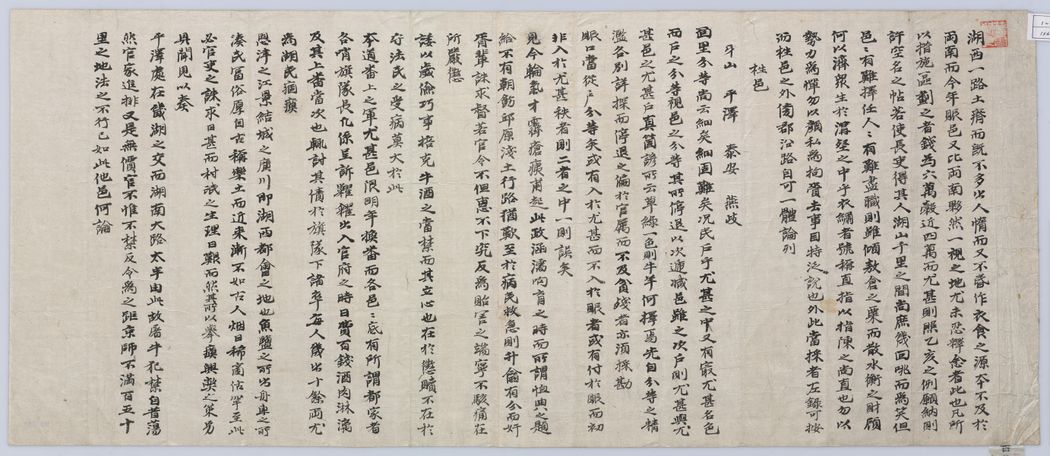 湖西一路土瘠而旣不多出人惰而又不畜作衣食之源本不及於
兩南而今年賑邑又比兩南夥然一視之地尤未忍釋念者此也凡所
以措施區劃之者錢爲六萬穀近四萬而尤甚則照乙亥之例願納則
許空名之帖若使長吏得其人湖山千里之間尙庶幾回咷而爲笑但
邑邑有難擇任人人有難盡職則雖傾敖倉之粟而散水衡之財顧
何以濟衆生於溝壑之中乎衣繡者號稱直指以指陳之尙直也勿以
勢力爲憚勿以顔私爲拘賣去事目特泛說也外此當採者左錄可按
而祑邑之外傍郡沿路自可一體論列
祑邑
牙山 平澤 泰安 燕歧
面里分等尙云細矣細固難矣況民戶乎尤甚之中又有最尤甚名色
而戶之分等視邑之分等其所停退以次遞減邑雖之次戶則尤甚與尤
甚邑之尤甚戶眞箇諺所云草綠一色則牛羊何擇焉先自分等之精
濫各別詳探而停退之偏於官屬而不及貧殘者亦須採勘
賑口當從戶分等矣或有入於尤甚而不入於賑者或有付於賑而初
非入於尤甚秩者則二者之中一則誤矣
見今輪氣才霽瘡痍甫起此政涵濡呴育之時而所謂恤典之題
給不有朝飭邱原淺土行路猶歎至於病民救急則升龠有分而奸
胥輩誅求督若官令不但惠不下究反爲貽害之端寧不駭痛在
所嚴懲
諉以歲儉巧事格克牛酒之當禁而其立心也在於懲贖不在於
存法民之受病莫大於此
本道番上之軍尤甚邑限明年換番而各邑邑底有所謂都家者
各哨旗隊長化係呈訴鞾鞾出入官府之時日費百錢酒肉淋漓
及其上番當次也輒討其債於旗隊下諸卒每人幾出十餘兩尤
爲湖民痼瘼
恩津之江景結城之廣川卽湖西都會之地也魚鹽之所出舟車之所
湊民富俗厚自古稱樂土而近來漸不如古人烟日稀商估罕至此
必官吏之誅求日甚而村氓之生理日艱而然其所以擧瘼興樂之策另
具聞見以奏
平澤處在畿湖之交而湖南大路太半由此故屠牛犯禁自昔蕩
然官家進排又是無價官不惟不禁反令爲之距京師不滿百五十
里之地法之不行已如此他邑何論